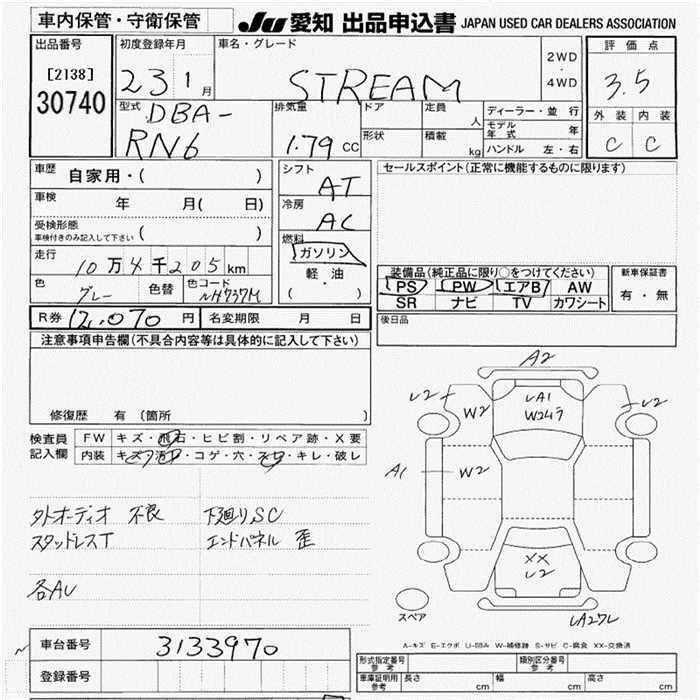 車内保管・守衛保管
JU 愛知 出品申込書 JAPAN USED CAR DEALERS ASSOCIATION
出品番号
[2138]
30740
初度登録年月
23 1月
車名・グレード
STREAM
2WD
・
4WD
評価点
3.5
外装 内装
C C
型式
DBA-
RN6
排気量
1.79 CC
ドア
形状
定員
人
積載
kg
ディーラー・並行
モデル年式 年
ハンドル 左・右
車歴
自家用・( )
車検
年 月( 日)
受検形態
車検付きのみ記入して下さい ( )
走行
10万4千205km
色
グレー
色替
色コード
NH737M
シフト
AT
冷房
AC
燃料
ガソリン
軽・油
( ・ )
セールスポイント(正常に機能するものに限ります)
装備品(純正品に限り○をつけてください)
PS PW エアB AW
SR ナビ TV カワシート
新車保証書
有・無
後日品
R券 12,070 円
名変期限 月 日
注意事項申告欄(不具合内容等は具体的に記入して下さい)
修復歴 有 (箇所 )
検査員
記入欄
FW キズ・飛石・ヒビ割・リペア跡・X要
内装 キズ・汚れ・コゲ・穴・スレ・キレ・破レ
外オーディオ 不良
スタッドレスT
各AU
下廻りSC
エンドパネル 歪
A2
U2
W2
UA1
U2
A1
W2
XX
U2
スペア
A-キズ E-エクボ U-凹み W-補修跡 S-サビ C-腐食 XX-交換済
車台番号
3133970
登録番号
形式指定番号
参考
類別区分番号
参考
車庫証明用
参考
長さ cm
幅 cm
高さ cm